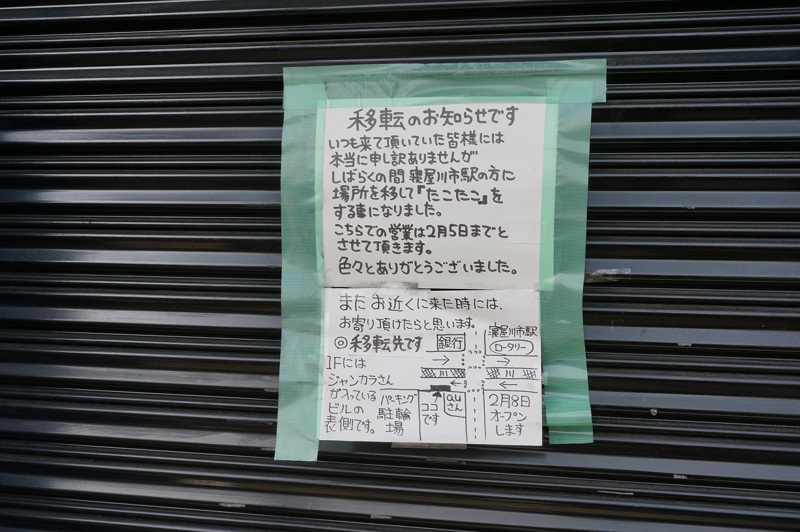 移転のお知らせです
いつも来て頂いていた皆様には
本当に申し訳ありませんが
しばらくの間 寝屋川市駅の方に
場所を移して『たこたこ』を
する事になりました。
こちらでの営業は2月5日までと
させて頂きます。
色々とありがとうございました。
また お近くに来た時には、
お寄り頂けたらと思います。
◎移転先です
銀行
寝屋川市駅
ロータリー
→
→
川
川
←
←
1Fには
ジャンカラさん
が入っている
ビルの
表側です。
パーキング
駐輪
場
ココ
です
auさん
2月8日
オープン
します